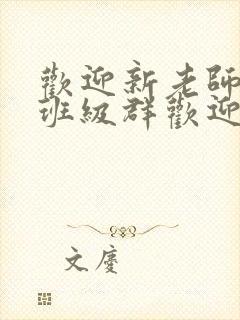 歡迎新老師
班級群歡迎
文慶